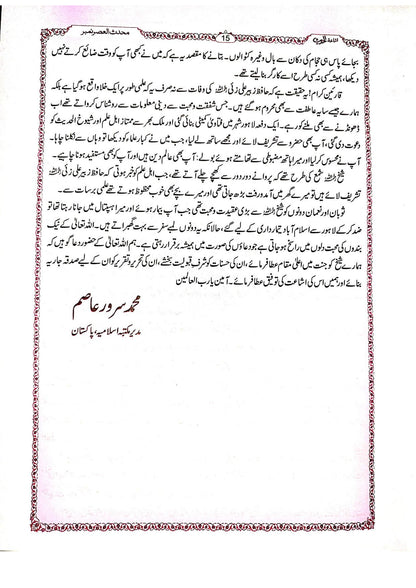 محدث العصر نمبر
15
بجائے پاس ہی حجام کی دکان سے بال وغیرہ کٹوالوں۔ بتانے کا مقصد یہ ہے کہ میں نے کبھی آپ کو وقت ضائع کرتے نہیں
دیکھا، ہمیشہ کسی نہ کسی طرح اسے کارگر بنا لیتے تھے۔
قارئین کرام! یہ حقیقت ہے کہ حافظ زبیر علی زئی رحمہ اللہ کی وفات سے نہ صرف یہ کہ علمی طور پر ایک خلا واقع ہو گیا ہے بلکہ
ہمارے جیسے سایہ عاطفت سے بھی محروم ہو گئے ہیں۔ جس شفقت ومحبت سے دینی معلومات سے روشناس کرواتے تھے اب
ڈھونڈنے سے بھی ملنے کو رہے۔ ایک دفعہ لاہور شہر میں فتاویٰ کمیٹی بنائی گئی اور ملک بھر سے ممتاز اہل علم اور شیوخ الحدیث کو
دعوت دی گئی، آپ بھی حضرو سے تشریف لائے اور مجھے ساتھ لے لیا، جب میں نے کبار علماء کو دیکھا تو وہاں سے نکلنا چاہا۔
آپ نے محسوس کر لیا اور میرا ہاتھ مضبوطی سے تھامتے ہوئے بولے: آپ بھی عالم دین ہیں اور آپ کو بھی مستفید ہونا چاہیے۔
شیخ رحمہ اللہ شمع کی طرح تھے کہ پروانے دور دور سے کھچے چلے آتے تھے، جب اہل علم کو خبر ہوتی کہ حافظ زبیر علی زئی رحمہ اللہ
تشریف لائے ہیں تو میرے گھر میں آمد ورفت بڑھ جاتی تھی اور میرے بچے بھی خوب محظوظ ہوتے تھے علمی برسات سے۔
ثوبان اور نعمان دونوں کو شیخ رحمہ اللہ سے بڑی عقیدت ومحبت تھی جب آپ بیمار ہوئے اور میرا ہسپتال میں جانا رہتا تھا تو
ضد کر کے لاہور سے اسلام آباد تیمارداری کے لیے گئے، حالانکہ یہ دونوں لمبے سفر سے بہت گھبراتے ہیں۔ اللہ تعالیٰ کے نیک
بندوں کی محبت دلوں میں راسخ ہو جاتی ہے جو دعاؤں کی صورت میں ہمیشہ برقرار رہتی ہے۔ ہم اللہ تعالیٰ کے حضور دعا گو ہیں کہ
ہمارے شیخ کو جنت میں اعلیٰ مقام عطا فرمائے، ان کی حسنات کو شرف قبولیت بخشے، ان کی تحریر و تقریر کو ان کے لیے صدقہ جاریہ
بنائے اور ہمیں اس کی اشاعت کی توفیق عطا فرمائے۔ آمین یارب العالمین
محمد سرور عاصم
مدیر مکتبہ اسلامیہ، پاکستان